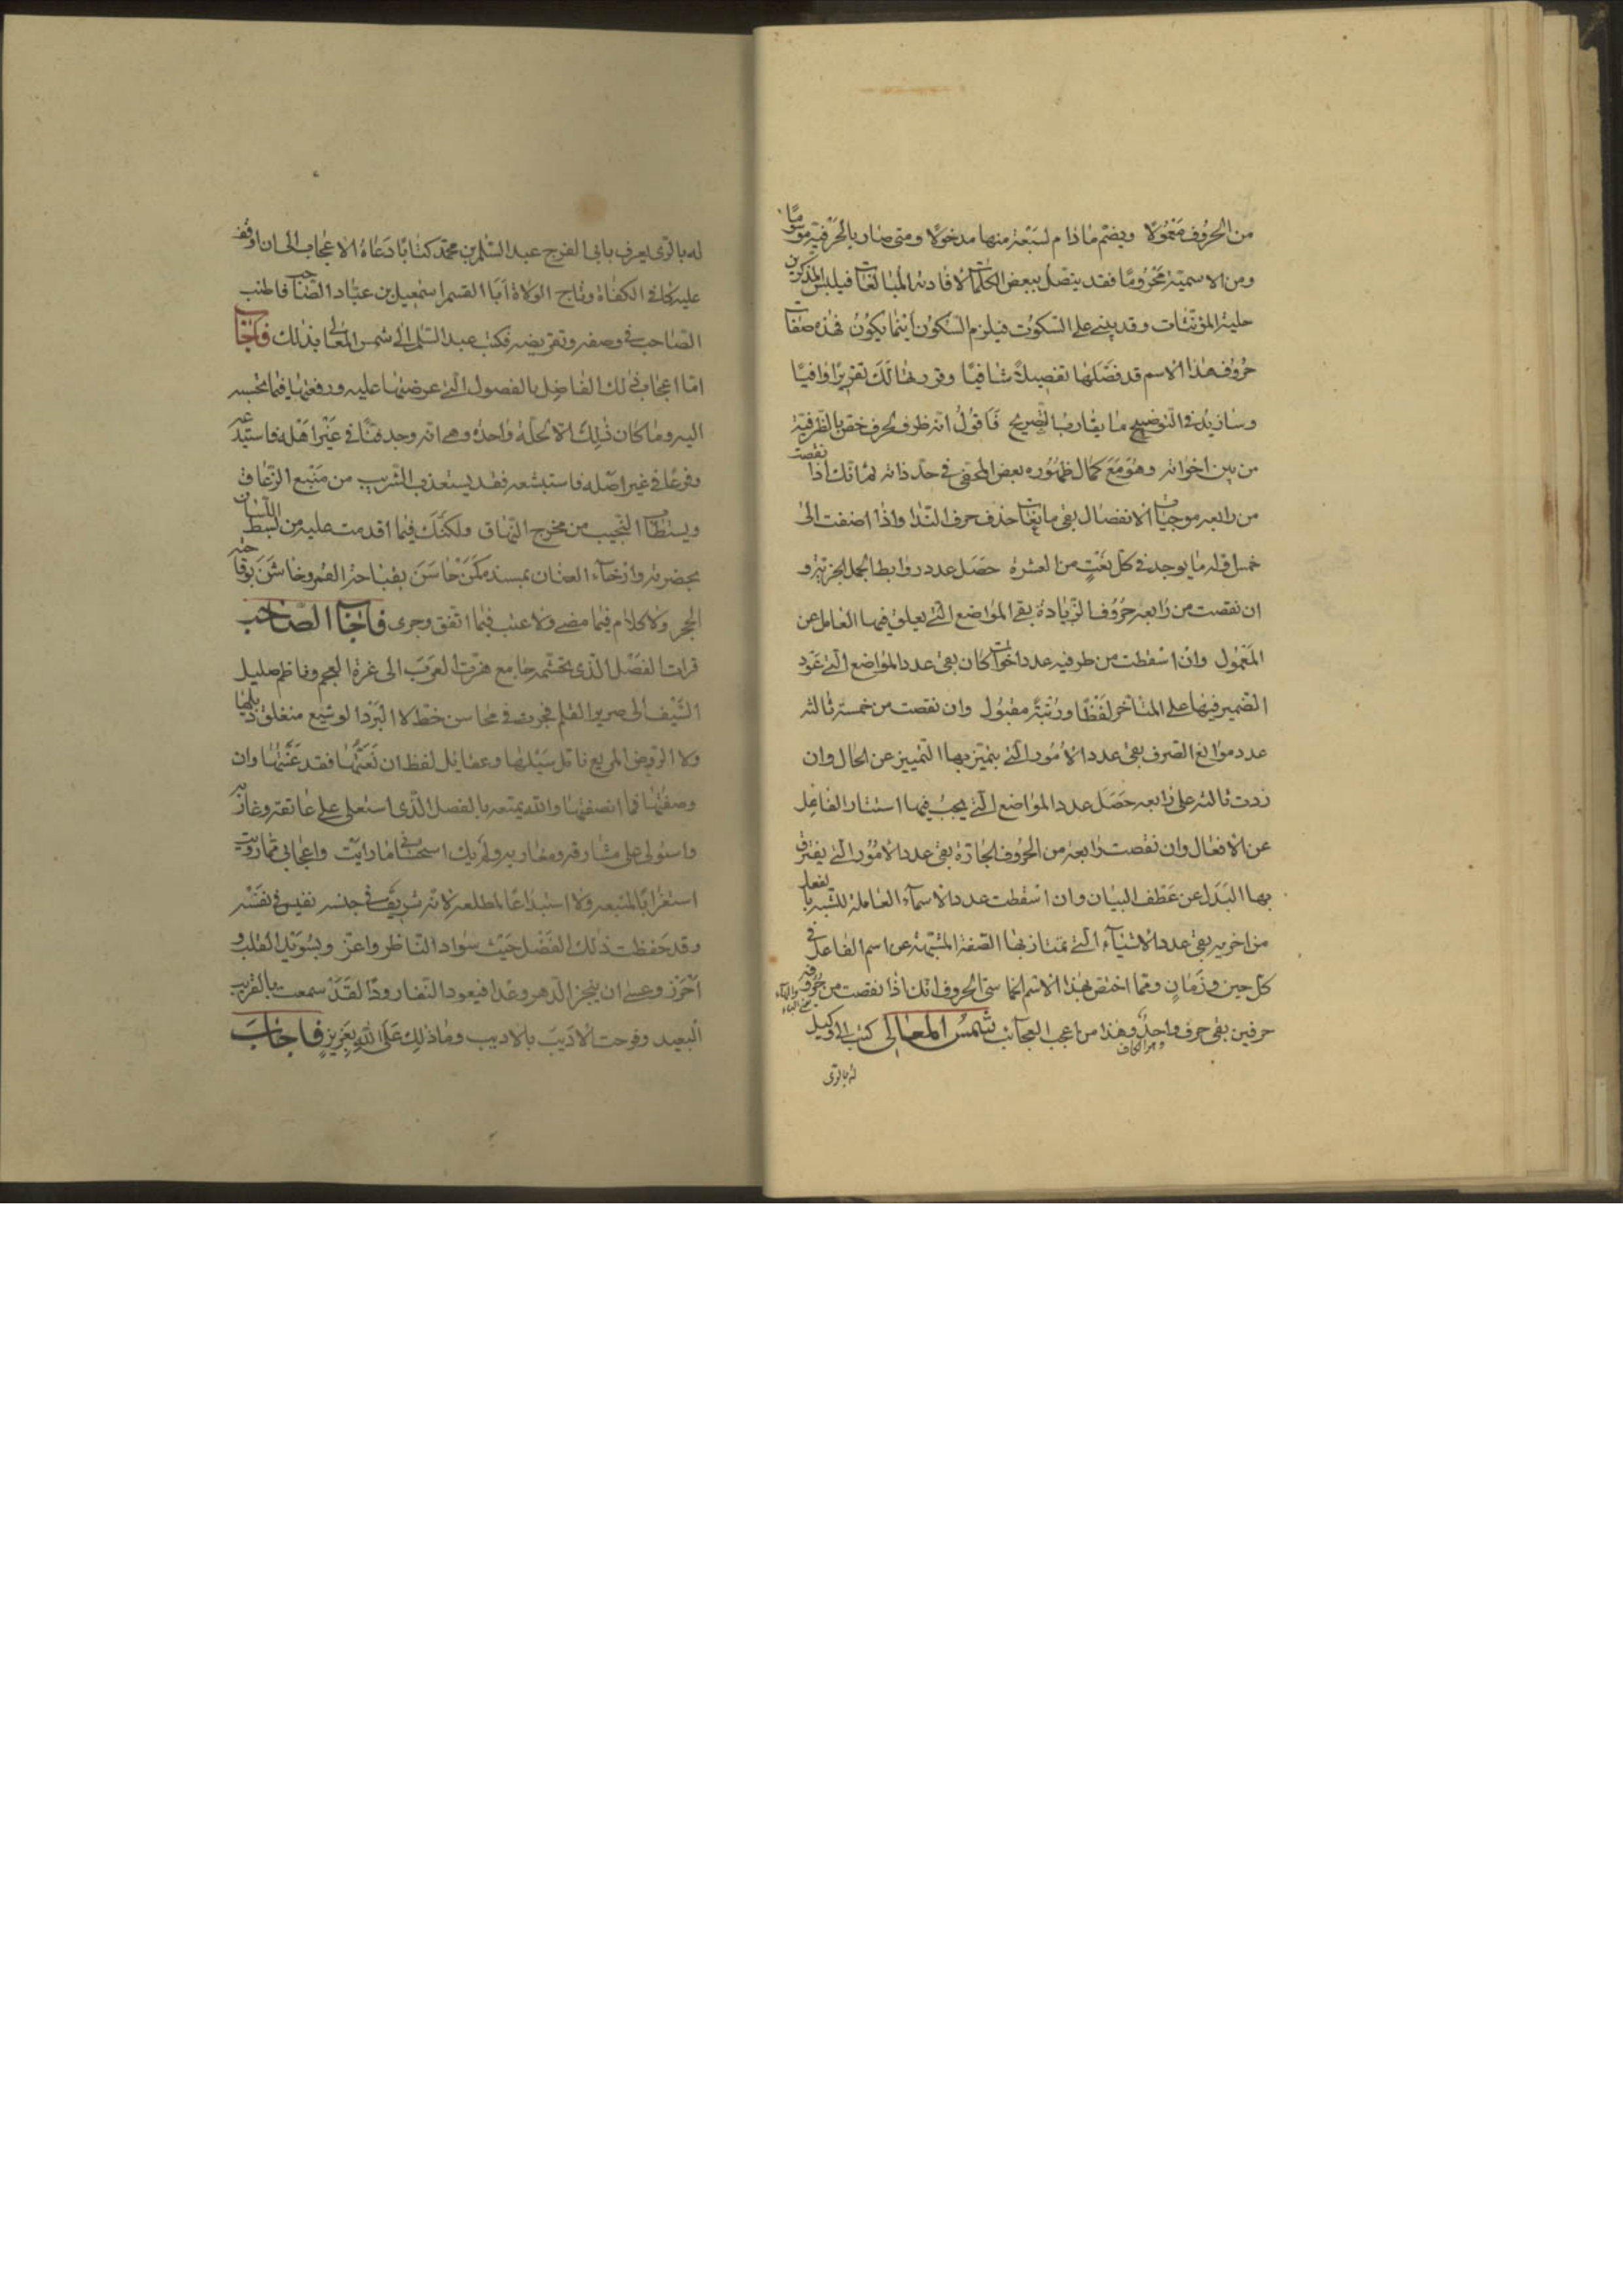 من الحروف معمولا ويضم ما دام لسبعة منها مدخولا ومتى صار بالحرفية موسوما
ومن الاسمية محروما فقد يتصل ببعض الكلمات لافادته المبالغات فيلبس المذكرين
حلية المؤنثات وقد يبنى على السكون فيلزم السكون اينما يكون فهذه صفات
حروف هذا الاسم قد فصلتها تفصيلا شافيا وقررتها لك تقريرا وافيا
وسازيد في التوضيح ما يقارب التصريح فاقول انه ظرف لحرف خص بالظرفية
من بين اخواته وهو مع كمال ظهوره بعض المختفي في حد ذاته ثم انك اذا نقصت
من رابعه موجبات الانفصال بقى مانعات حذف حرف الندا واذا اضفت الى
خمس اوله ما يوجد في كل نعت من العشرة حصل عدد روابط الجمل الخبرية و
ان نقصت من رابعه حروف الزيادة بقى المواضع التي يعلق فيها العامل عن
المعمول وان اسقطت من طرفيه عدد اخوات كان بقى عدد المواضع التي عود
الضمير فيها على المتاخر لفظا ورتبة مقبول وان نقصت من خمسة ثالثه
عدد موانع الصرف بقى عدد الامور التي يتميز بها التمييز عن الحال وان
زدت ثالثه على رابعه حصل عدد المواضع التي يجب فيها استتار الفاعل
عن الافعال وان نقصت رابعه من الحروف الجارة بقى عدد الامور التي يفترق
بها البدل عن عطف البيان وان اسقطت عدد الاسماء العاملة للشبه بالفعل
من اخريه بقى عدد الاشياء التي تمتاز بها الصفة المشبهة عن اسم الفاعل في
كل حين وزمان ومما اختص بهذا الاسم الخماسي الحروف انك اذا نقصت من حروفه
حرفين بقى حرف واحد وهذا من اعجب العجائب شمس المعالى كتب الى وكيل
وهو الكاف
له بالرى
له بالرى يعرف بابى الفرج عبد السلم بن محمد كتابا دعاه الاعجاب الى ان اوقف
عليه كافى الكفاة وتاج الولاة ابا القسم اسمعيل بن عباد الصاحب فاطنب
الصاحب في وصفه وتقريضه فكتب عبد السلم الى شمس المعالى بذلك فاجاب
اما اعجاب ذلك الفاضل بالفصول التي عرضتها عليه ورفعتها فيما تحسبه
اليه وما كان ذلك الا لخلة واحدة وهي انه وجد فنا في غير اهله فاستبدعه
وفرعا في غير اصله فاستبشعه فقد يستعذب الشرب من منبع الزعاق
ويستطاب النجيب من مخرج النهاق ولكنك فيما اقدمت عليه من بسط اللسان
بحضرته وارخاء العنان بمسند كمن حاسن بقباحته القمر وخاشن بوقاحته
الحجر ولا كلام فيما مضى ولا عتب فيما اتفق وجرى فاجاب الصاحب
قرات الفصل الذى تجشمه جامع هزة العرب الى عزة العجم وناظم صليل
السيف الى صرير القلم فجرت في محاسن خط لا البرد الوشيع متعلق بذيلها
ولا الروض المريع ناقل سيلها وعقايل لفظ ان نعتها فقد عبتها وان
وصفتها فما انصفتها والله يمتعه بالفصل الذى استعلى على عاتقه وغاربه
واستولى على مشارقه ومغاربه ولم يك استحسانى لما رايت واعجابى بما رويت
استغرابا لمنبعه ولا استبداعا لمطلعه لانه شريف في جنسه نفيس في نفسه
وقد حفظت ذلك الفصل حيث سواد الناظر واعز وبسويد القلب و
احرز وعسى ان ينجز الدهر وعدا فيعود النفار ودا لقد سمعت بالقريب
البعيد وفرحت الاديب بالاديب وما ذلك على الله بعزيز فاجاب